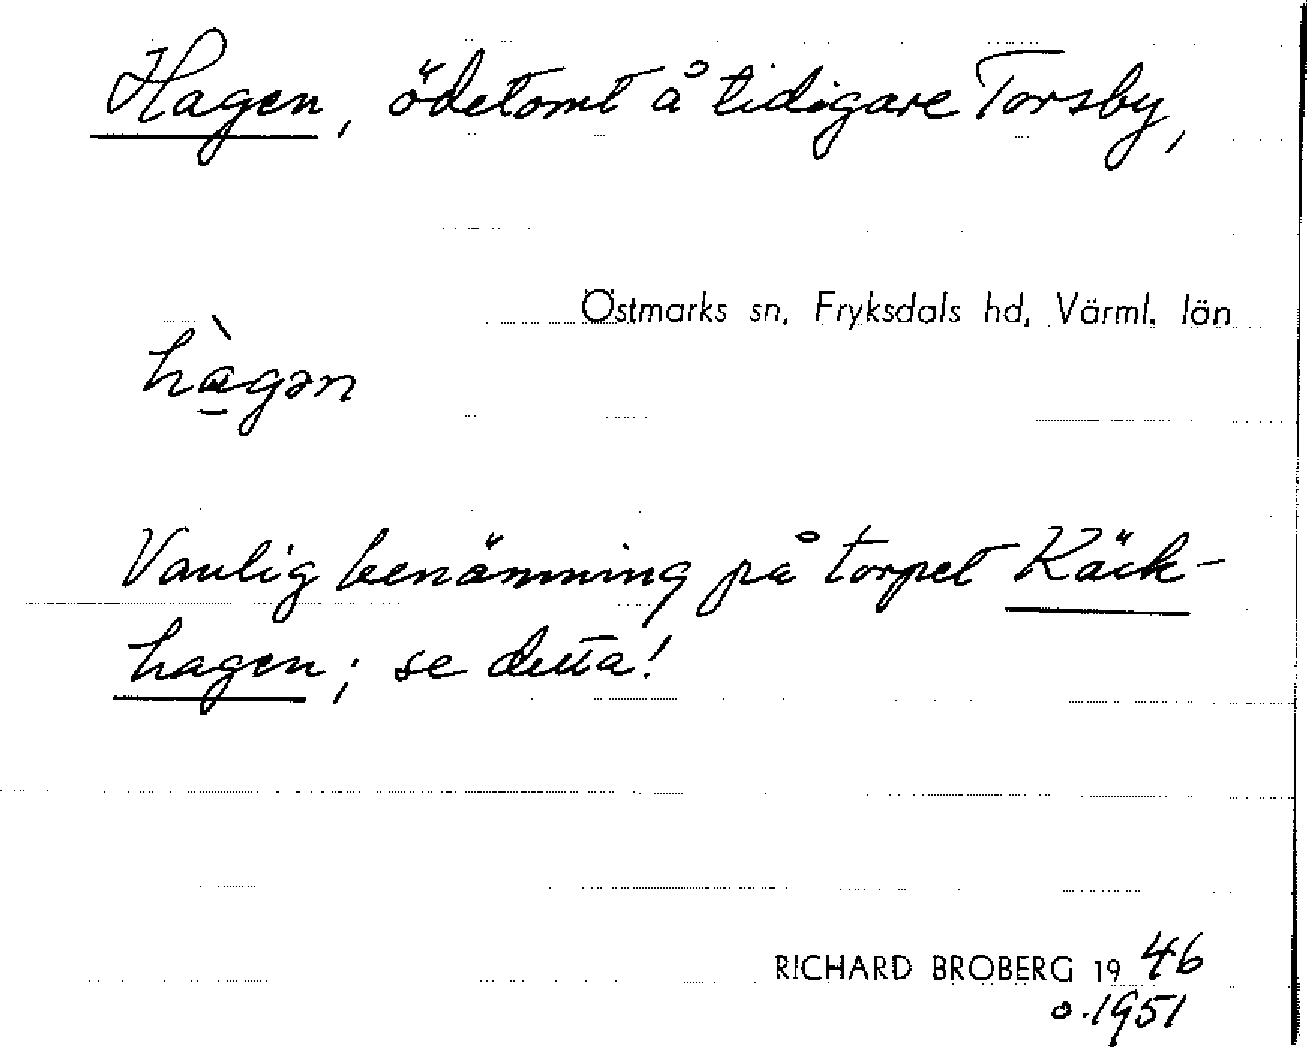 Hagen, ödetomt å tidigare Torsby,
Östmarks sn, Fryksdals hd, Värml. län
hàgən
Vanlig benämning på torpet Käck-
hagen; se detta!
RICHARD BROBERG 1946
o. 1951